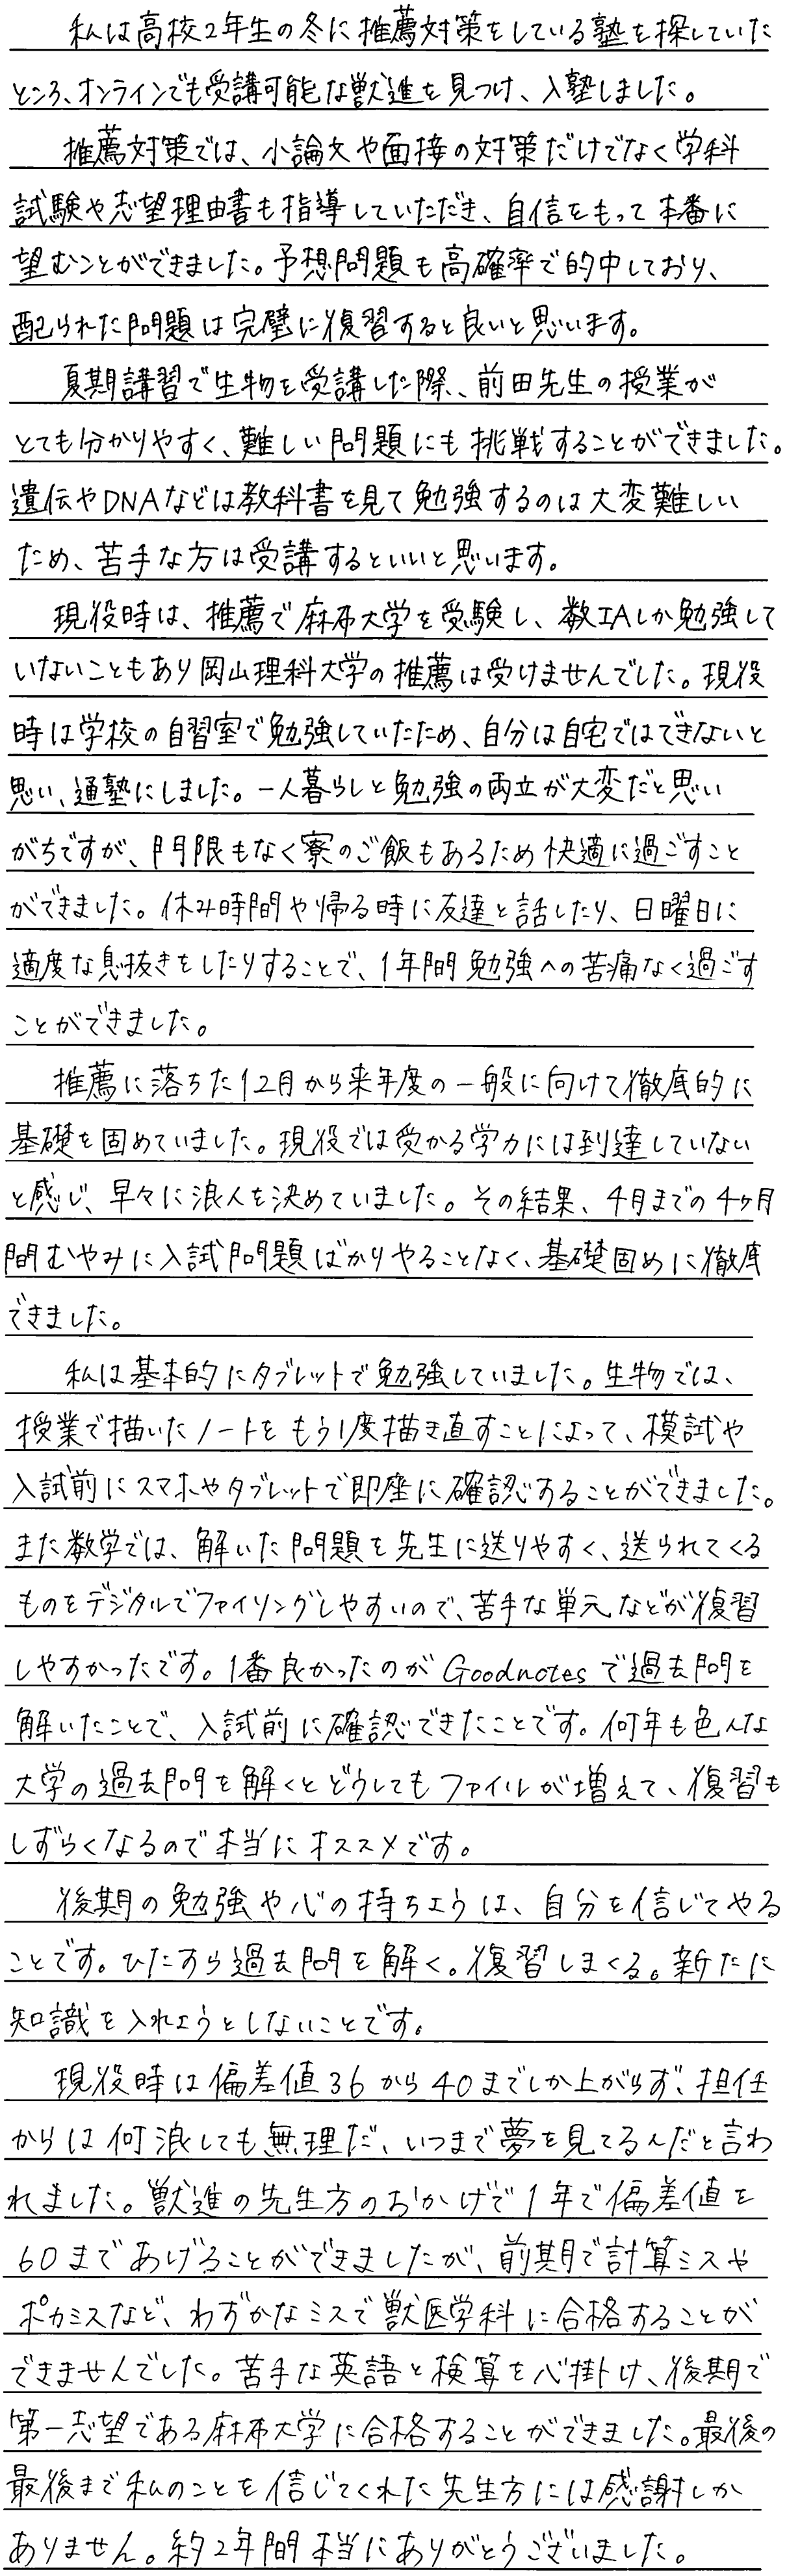 私は高校2年生の冬に推薦対策をしている塾を探していた
ところ、オンラインでも受講可能な獣進を見つけ、入塾しました。
推薦対策では、小論文や面接の対策だけでなく学科
試験や志望理由書も指導していただき、自信をもって本番に
望むことができました。予想問題も高確率で的中しており、
配られた問題は完璧に復習すると良いと思います。
夏期講習で生物を受講した際、前田先生の授業が
とても分かりやすく、難しい問題にも挑戦することができました。
遺伝やDNAなどは教科書を見て勉強するのは大変難しい
ため、苦手な方は受講するといいと思います。
現役時は、推薦で麻布大学を受験し、数IAしか勉強して
いないこともあり岡山理科大学の推薦は受けませんでした。現役
時は学校の自習室で勉強していたため、自分は自宅ではできないと
思い、通塾にしました。一人暮らしと勉強の両立が大変だと思い
がちですが、門限もなく寮のご飯もあるため快適に過ごすこと
ができました。休み時間や帰る時に友達と話したり、日曜日に
適度な息抜きをしたりすることで、1年間勉強への苦痛なく過ごす
ことができました。
推薦に落ちた12月から来年度の一般に向けて徹底的に
基礎を固めていました。現役では受かる学力には到達していない
と感じ、早々に浪人を決めていました。その結果、4月までの4ヶ月
間むやみに入試問題ばかりやることなく、基礎固めに徹底
できました。
私は基本的にタブレットで勉強していました。生物では、
授業で描いたノートをもう1度描き直すことによって、模試や
入試前にスマホやタブレットで即座に確認することができました。
また数学では、解いた問題を先生に送りやすく、送られてくる
ものをデジタルでファイリングしやすいので、苦手な単元などが復習
しやすかったです。1番良かったのがGoodnotesで過去問を
解いたことで、入試前に確認できたことです。何年も色んな
大学の過去問を解くとどうしてもファイルが増えて、復習も
しずらくなるので本当にオススメです。
後期の勉強や心の持ちようは、自分を信じてやる
ことです。ひたすら過去問を解く。復習しまくる。新たに
知識を入れようとしないことです。
現役時は偏差値36から40までしか上がらず、担任
からは何浪しても無理だ、いつまで夢を見てるんだと言わ
れました。獣進の先生方のおかげで1年で偏差値を
60まであげることができましたが、前期で計算ミスや
ポカミスなど、わずかなミスで獣医学科に合格することが
できませんでした。苦手な英語と検算を心掛け、後期で
第一志望である麻布大学に合格することができました。最後の
最後まで私のことを信じてくれた先生方には感謝しか
ありません。約2年間本当にありがとうございました。